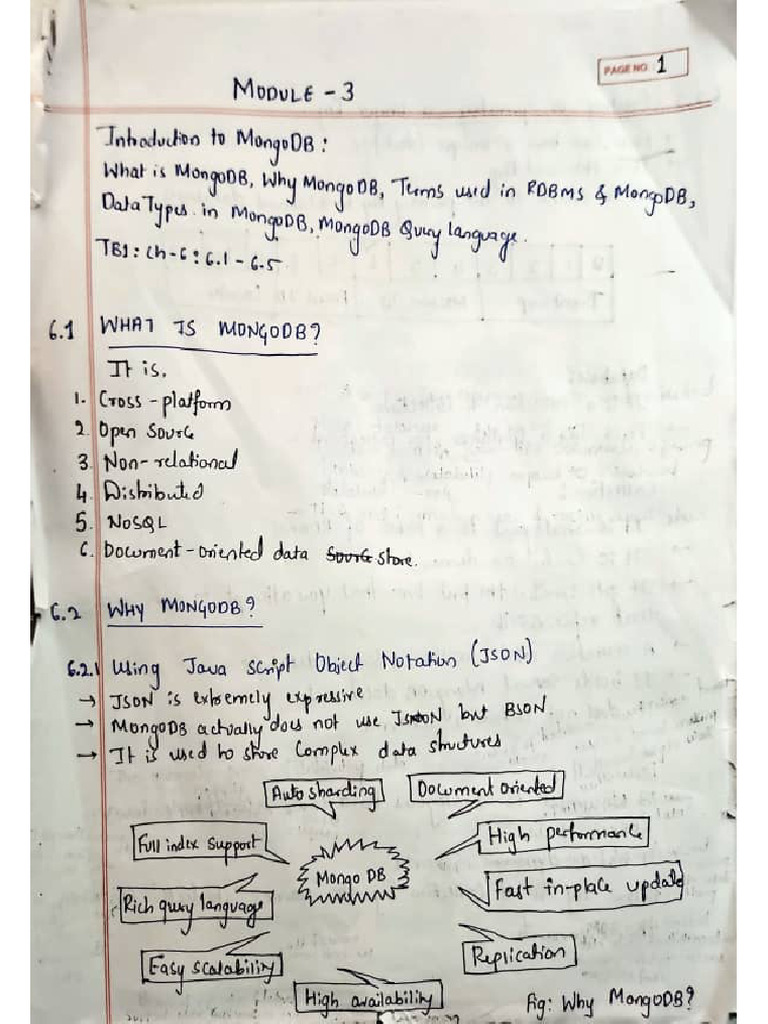 PAGE NO. 1
MODULE - 3
Introduction to MongoDB:
What is MongoDB, Why MongoDB, Terms used in RDBMS & MongoDB,
Data Types in MongoDB, MongoDB Query language.
TB1: Ch-6: 6.1 - 6.5
6.1 WHAT IS MONGODB?
It is.
1. Cross-platform
2. Open Source
3. Non-relational
4. Distributed
5. NoSQL
6. Document-oriented data store.
6.2 WHY MONGODB?
6.2.1 Using Java Script Object Notation (JSON)
→ JSON is extremely expressive
→ MongoDB actually does not use JSON but BSON.
→ It is used to store Complex data structures
Auto sharding
Document Oriented
Full index support
High performance
Mongo DB
Rich query language
Fast in-place update
Easy scalability
Replication
High availability
Fig: Why MongoDB?